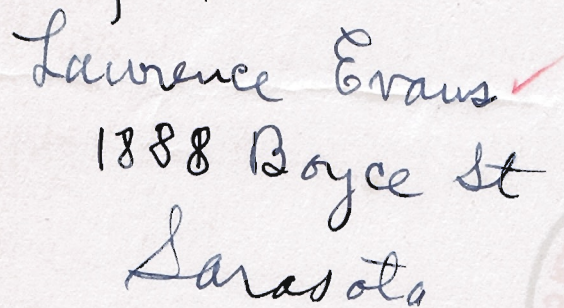 Lawrence Evans
1888 Boyce St
Sarasota